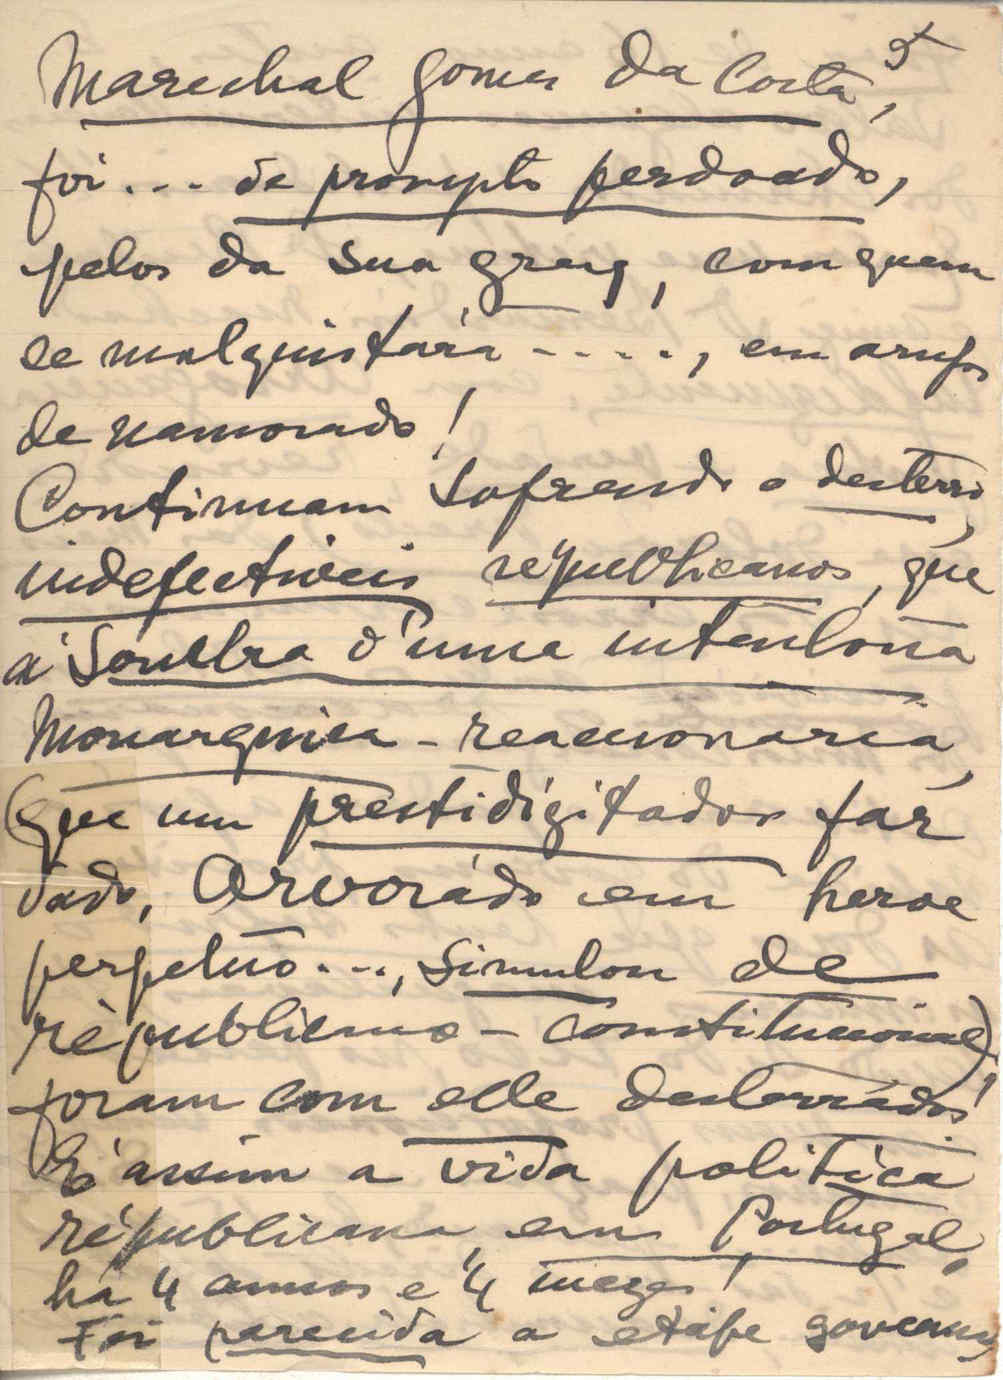 5
Marechal Gomes da Costa,
foi... de prompto perdoado,
pelos da sua grey, com quem
se malquistára - . . . ., em arrufos
de namorado!
Continuam sofrendo o desterro,
indefectiveis republicanos, que
á sombra d'uma intentona
Monarquica - reaccionaria,
(que um prestidigitador far
dado, arvorádo em heroe
perpetuo..., simulou de
républicano - constitucional)
foram com elle desterrados!
E' assim a vida politica
républicana, em Portugal,
há 4 annos e 4 mezes!
Foi parecida a etápe